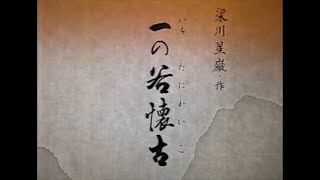 梁川星巌・作
一の谷懐古
いち たにかいこ